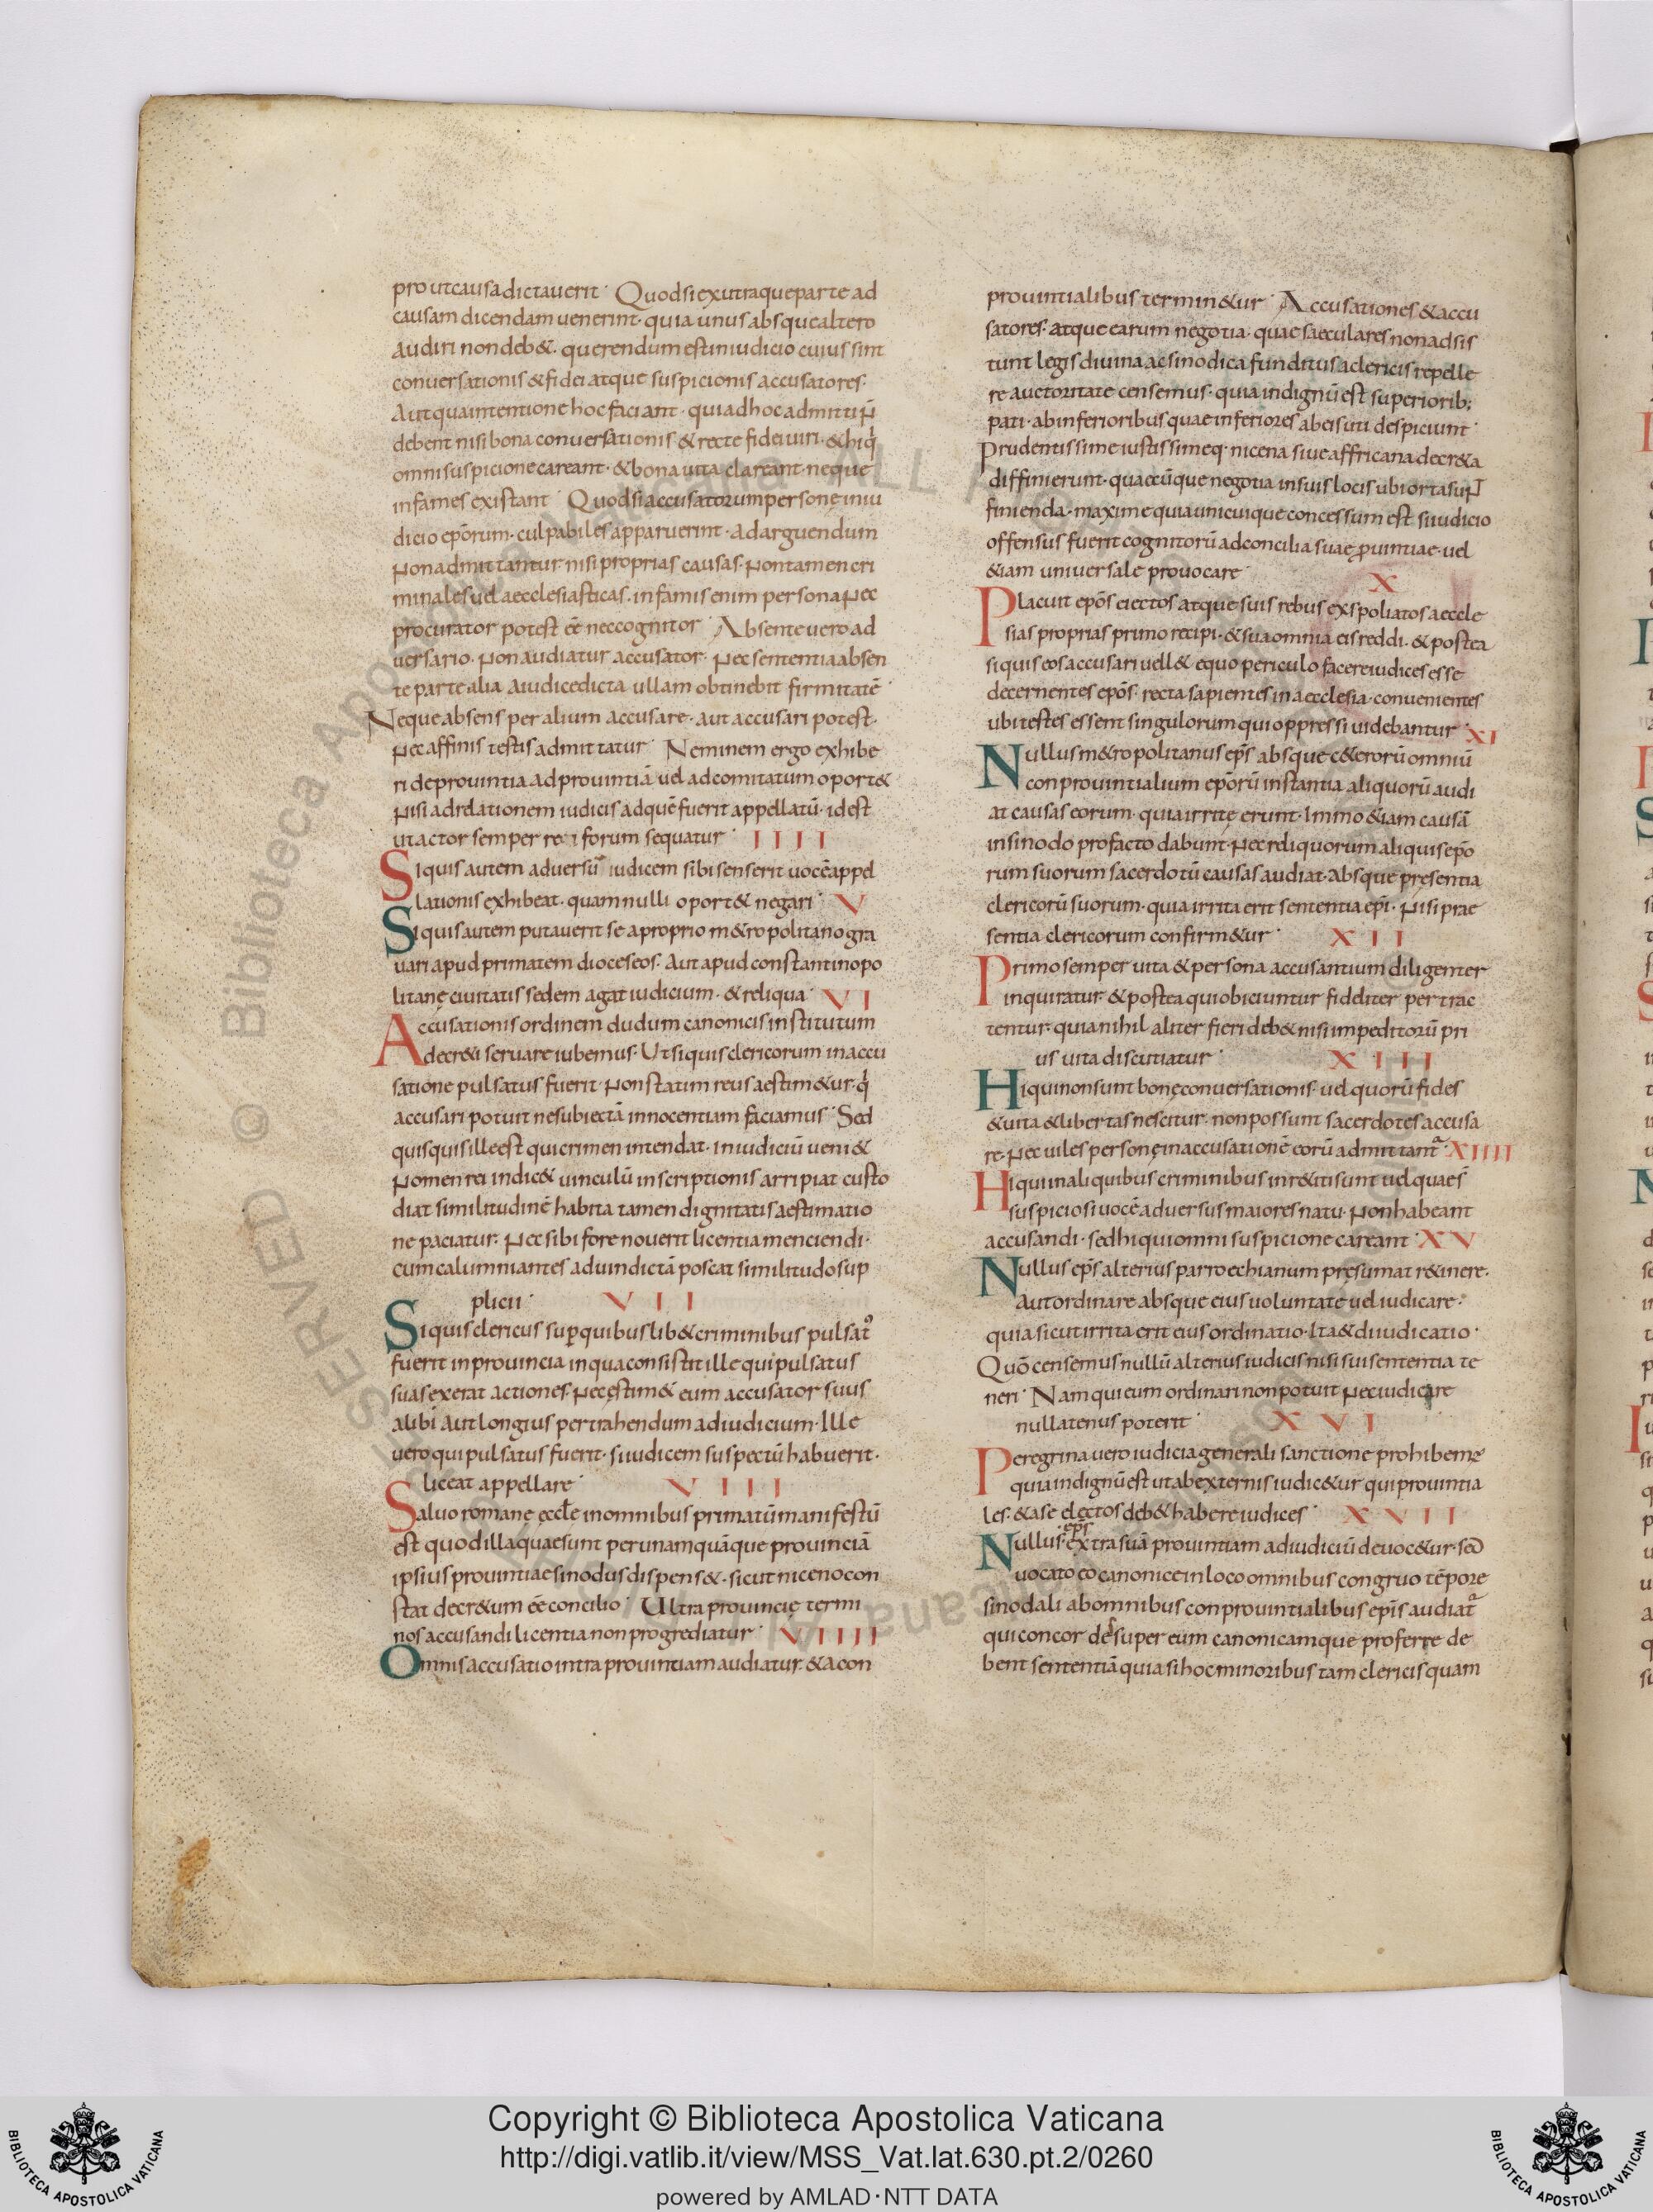 prout causa dictauerit· Quod si ex utraque parte ad
causam dicendam uenerint· quia unus absque altero
audiri non deb&· querendum est in iudicio cuius sint
conuersationis & fidei atque suspicionis accusatores·
Aut qua intentione hoc faciant· quia ad hoc admitti ñ
debent nisi bona conuersationis & recte fidei uiri· & hi q̇
omni suspicione careant· & bona uita clareant· neque
infames existant· Quod si accusatorum personę in iu
dicio ep̄orum· culpabiles apparuerint· ad arguendum
Non admittantur nisi proprias causas· Non tamen cri
minales uel aecclesiasticas· infamis enim persona Nec
procurator potest eē nec cognitor· Absente uero ad
uersario· Non audiatur accusator· Nec sententia absen
te parte alia a iudice dicta ullam obtinebit firmitatē·
Neque absens per alium accusare· aut accusari potest·
Nec affinis testis admittatur· Neminem ergo exhibe
ri de prouintia ad prouintiā uel ad comitatum oport&
Nisi ad relationem iudicis ad quē fuerit appellatū· idest
ut actor semper rei forum sequatur· IIII
Si quis autem aduersū iudicem sibi senserit uocē appel
lationis exhibeat· quam nulli oport& negari· V
Si quis autem putauerit se a proprio m&ropolitano gra
uari apud primatem dioceseos· Aut apud constantinopo
litanę ciuitatis sedem agat iudicium· & reliqua· VI
Accusationis ordinem dudum canonicis institutum
decr&i seruare iubemus· Ut si quis clericorum in accu
satione pulsatus fuerit· Non statim reus aestim&ur· q̇
accusari potuit ne subiectā innocentiam faciamus· Sed
quisquis ille est qui crimen intendat· in iudiciū ueni&
Nomen rei indic& uinculū inscriptionis arripiat custo
diat similitudinē habita tamen dignitatis aestimatio
ne paciatur· Nec sibi fore nouerit licentia menciendi·
cum calumniantes ad uindictā poscat similitudo sup
plicii· VII
Si quis clericus sup̱ quibuslib& criminibus pulsat᷒
fuerit in prouincia in qua consistit ille qui pulsatus
suas exerat actiones· Nec ęstim& eum accusator suus
alibi aut longius pertrahendum ad iudicium· Ille
uero qui pulsatus fuerit· si iudicem suspectū habuerit·
liceat appellare· VIII
Saluo romanę eccłe in omnibus primatū manifestū
est quod illa quae sunt per unamquāque prouinciā
ipsius prouintiae sinodus dispens&· sicut niceno con
stat decr&um eē concilio· Ultra prouincię termi
nos accusandi licentia non progrediatur· VIIII
Omnis accusatio intra prouintiam audiatur· & a con
prouintialibus termin&ur· Accusationes & accu
satores· atque earum negotia· quae saeculares non adsis
tunt legis diuina ac sinodica funditus a clericis repelle
re auctoritate censemus· quia indignū est superiorib;
pati· ab inferioribus quae inferiores ab eis uti despiciunt·
Prudentissime iustissimeq· nicena siue affricana decr&a
diffinierunt· quaecūque negotia in suis locis ubi orta suN̄
finienda· maxime quia unicuique concessum est si iudicio
offensus fuerit cognitorū ad concilia suae ꝓuintiae· uel
&iam uniuersale prouocare· X
Placuit ep̄os eiectos atque suis rebus exspoliatos aeccle
sias proprias primo recipi· & sua omnia eis reddi· & postea
si quis eos accusari uell& equo periculo facere iudices esse
decernentes ep̄os· recta sapientes in aecclesia· conuenientes
ubi testes essent singulorum qui oppressi uidebantur· XI
Nullus m&ropolitanus ep̄s absque c&erorū omniū
conprouintialium ep̄orū instantia aliquorū audi
at causas eorum· quia irritę erunt· Immo &iam causā
in sinodo pro facto dabunt· Nec reliquorum aliquis ep̄o
rum suorum sacerdotū causas audiat· absque pręsentia
clericorū suorum· quia irrita erit sententia ep̄i· Nisi prae
sentia clericorum confirm&ur· XII
Primo semper uita & persona accusantium diligenter
inquiratur· & postea qui obiciuntur fideliter pertrac
tentur· quia nihil aliter fieri deb& nisi impeditorū pri
us uita discutiatur· XIII
Hi qui non sunt bonę conuersationis· uel quorū fides
& uita & libertas nescitur· non possunt sacerdotes accusa
re· Nec uiles personę in accusationē eorū admittant᷑· XIIII
Hi qui in aliquibus criminibus inr&iti sunt uel quae s̄
suspiciosi uocē aduersus maiores natu· Non habeant
accusandi· sed hi qui omni suspicione careant· XV
Nullus ep̄s alterius parroechianum pręsumat r&inere·
Aut ordinare absque eius uoluntate uel iudicare·
quia sicut irrita erit eius ordinatio· Ita & diiudicatio·
Quō censemus nullū alterius iudicis nisi sui sententia te
neri· Nam qui eum ordinari non potuit Nec iudicare
nullatenus poterit· XVI
Peregrina uero iudicia generali sanctione prohibem᷒
quia indignū est ut ab externis iudic&ur qui prouintia
les· & a se electos deb& habere iudices· XVII
Nullus· ep̄s extra suā prouintiam ad iudiciū deuoc&ur· sed
uocato eo canonice in loco omnibus congruo tēpore
sinodali ab omnibus conprouintialibus ep̄is audiat᷑
qui concorde̊ super eum canonicamque proferre de
bent sententiā quia si hoc minoribus tam clericis quam
Copyright © Biblioteca Apostolica Vaticana
http://digi.vatlib.it/view/MSS_Vat.lat.630.pt.2/0260
powered by AMLAD·NTT DATA
BIBLIOTECA APOSTOLICA VATICANA
BIBLIOTECA APOSTOLICA VATICANA